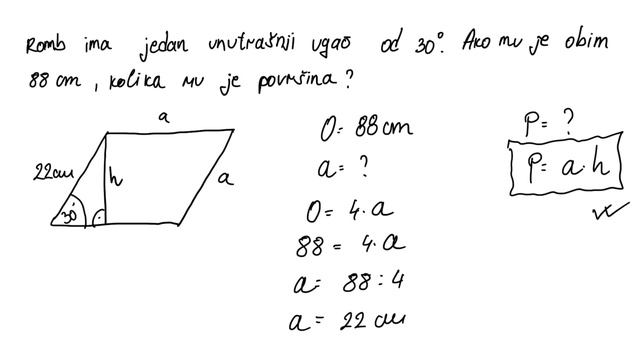 Romb ima jedan unutrašnji ugao od 30°. Ako mu je obim
88 cm, kolika mu je površina?
a
22cm
h
a
30°
O= 88cm
a= ?
O= 4·a
88 = 4·a
a= 88:4
a= 22 cm
P= ?
P= a·h